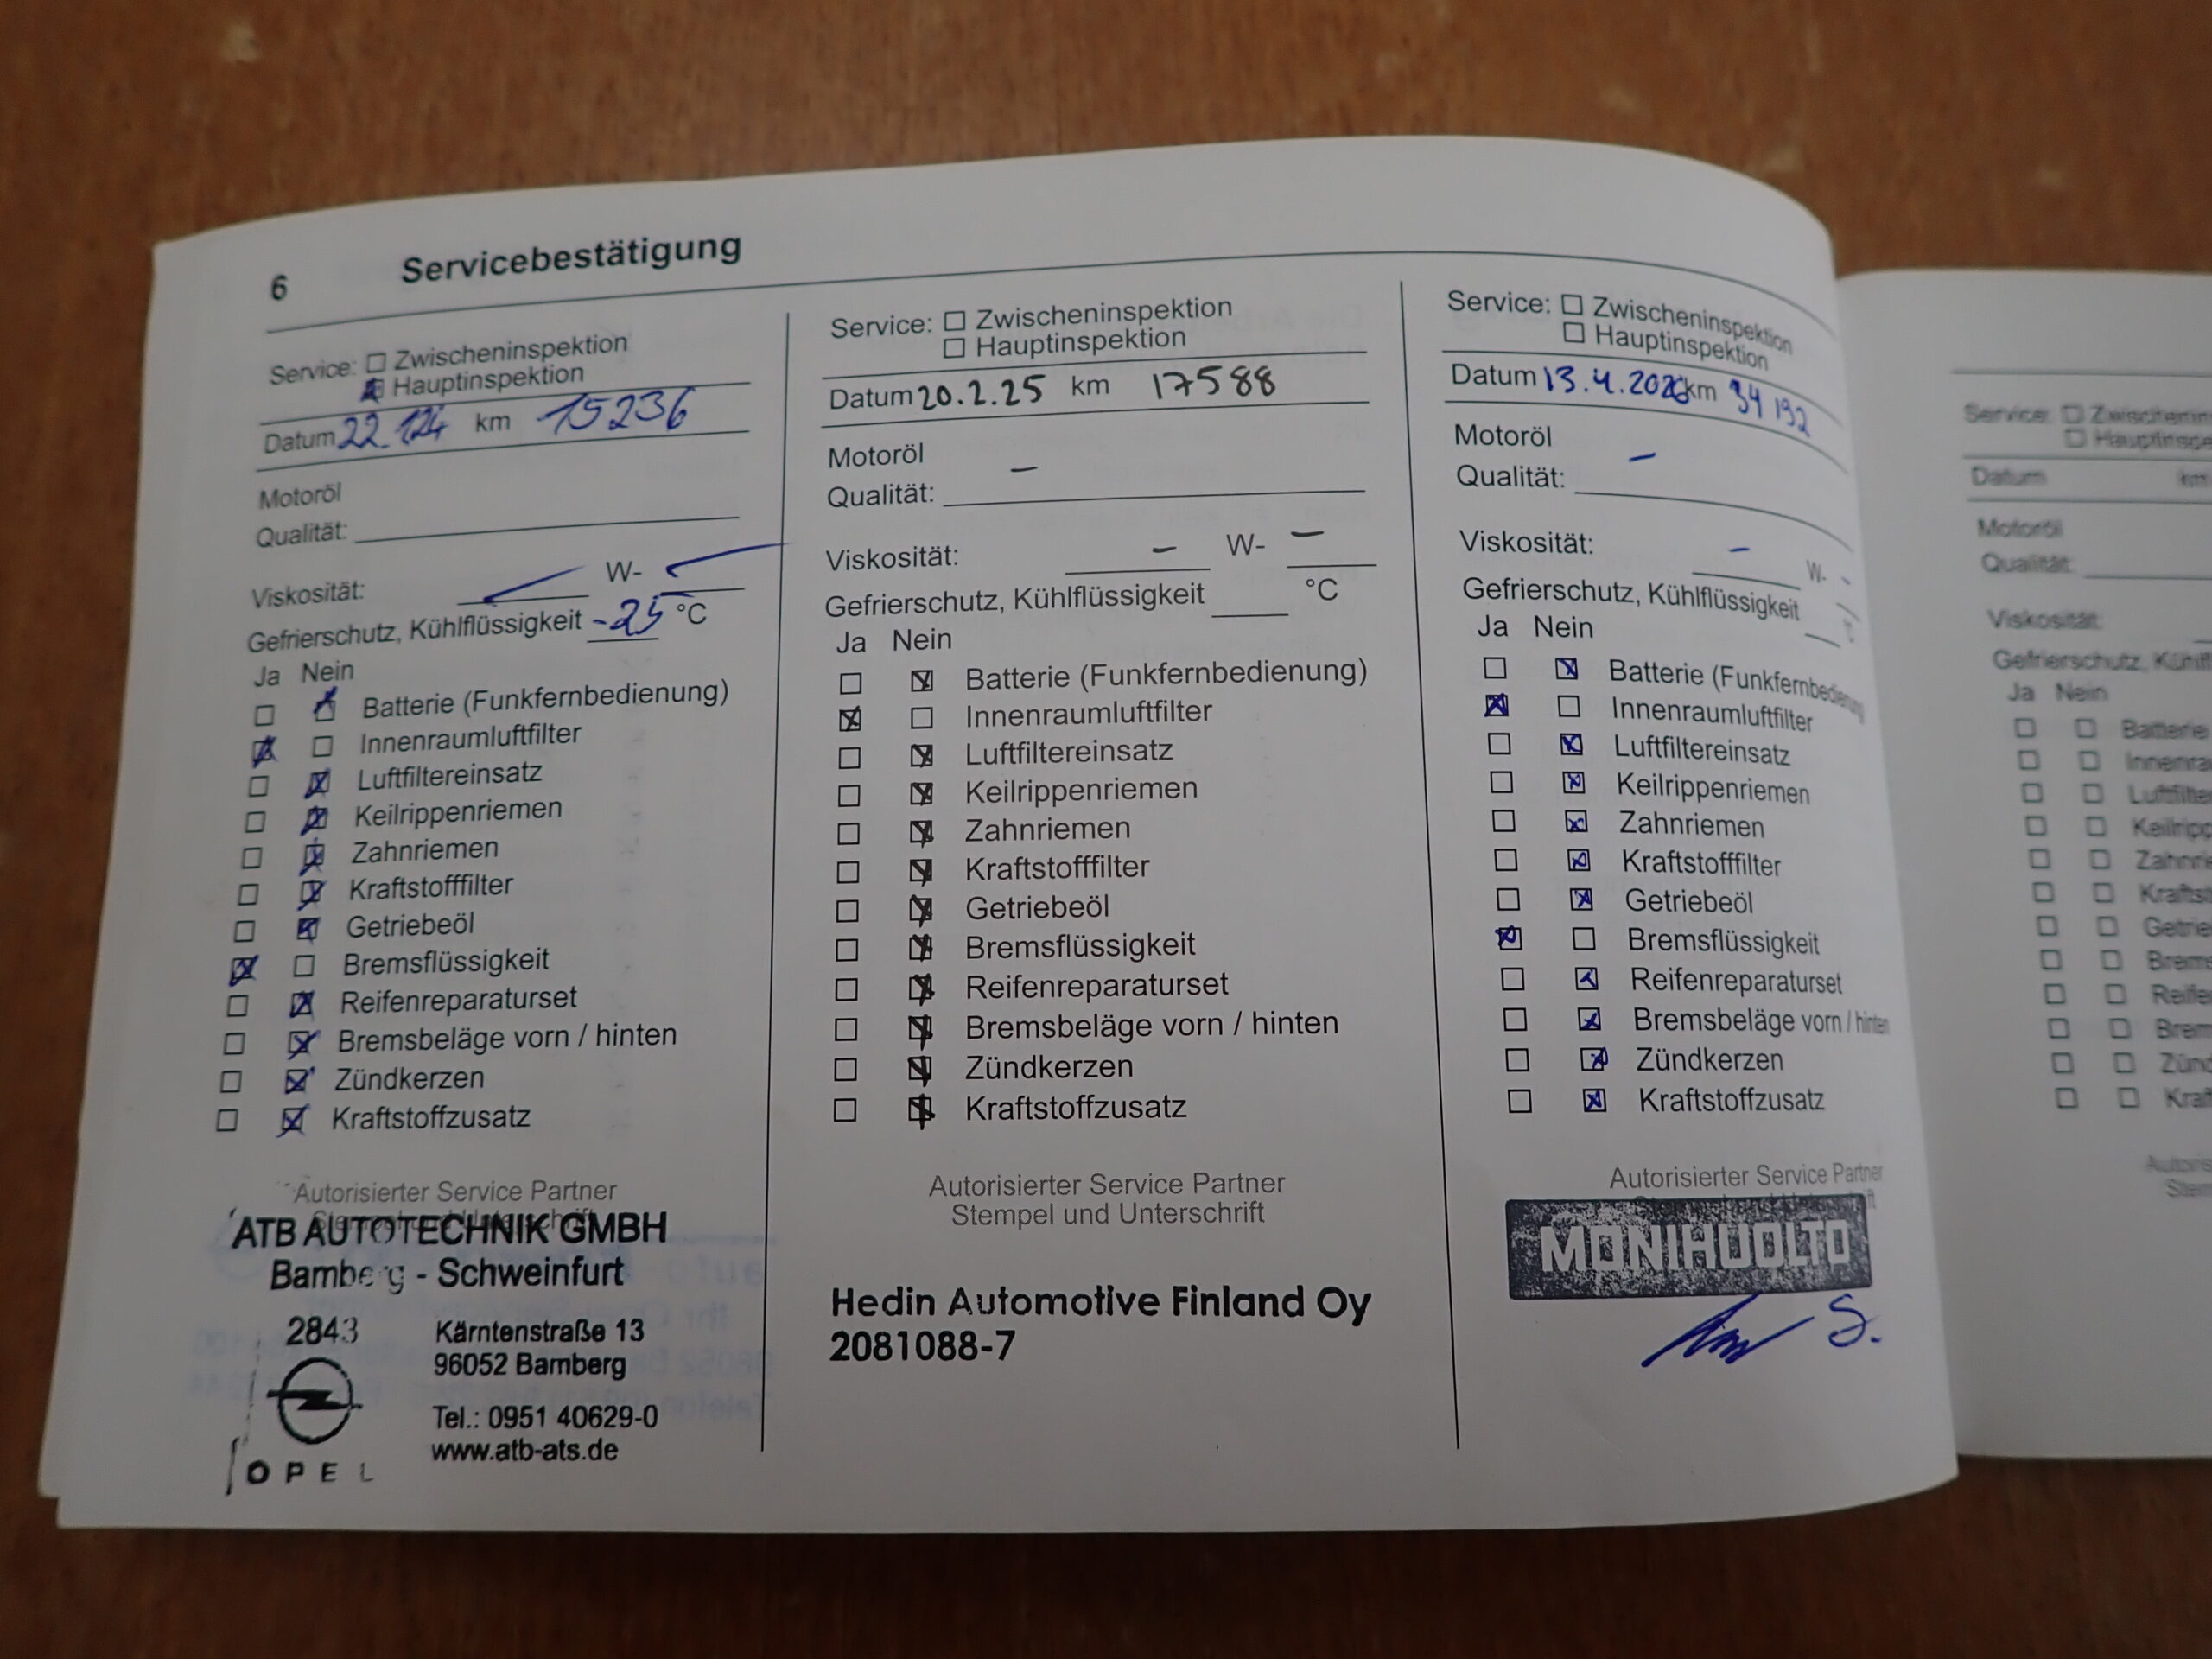 6 Servicebestätigung
Service: Zwischeninspektion
Hauptinspektion
Datum 22.1.24 km 15236
Motoröl
Qualität:
Viskosität: W-
Gefrierschutz, Kühlflüssigkeit -25 °C
Ja Nein
Batterie (Funkfernbedienung)
Innenraumluftfilter
Luftfiltereinsatz
Keilrippenriemen
Zahnriemen
Kraftstofffilter
Getriebeöl
Bremsflüssigkeit
Reifenreparaturset
Bremsbeläge vorn / hinten
Zündkerzen
Kraftstoffzusatz
Autorisierter Service Partner
Stempel und Unterschrift
ATB AUTOTECHNIK GMBH
Bamberg - Schweinfurt
2843 Kärntenstraße 13
96052 Bamberg
Tel.: 0951 40629-0
www.atb-ats.de
OPEL
Service: Zwischeninspektion
Hauptinspektion
Datum 20.2.25 km 17588
Motoröl –
Qualität:
Viskosität: – W- –
Gefrierschutz, Kühlflüssigkeit °C
Ja Nein
Batterie (Funkfernbedienung)
Innenraumluftfilter
Luftfiltereinsatz
Keilrippenriemen
Zahnriemen
Kraftstofffilter
Getriebeöl
Bremsflüssigkeit
Reifenreparaturset
Bremsbeläge vorn / hinten
Zündkerzen
Kraftstoffzusatz
Autorisierter Service Partner
Stempel und Unterschrift
Hedin Automotive Finland Oy
2081088-7
Service: Zwischeninspektion
Hauptinspektion
Datum 13.4.2026 km 34 192
Motoröl –
Qualität:
Viskosität: – W- -
Gefrierschutz, Kühlflüssigkeit °C
Ja Nein
Batterie (Funkfernbedienung)
Innenraumluftfilter
Luftfiltereinsatz
Keilrippenriemen
Zahnriemen
Kraftstofffilter
Getriebeöl
Bremsflüssigkeit
Reifenreparaturset
Bremsbeläge vorn / hinten
Zündkerzen
Kraftstoffzusatz
Autorisierter Service Partner
MONIHUOLTO
S.
Service: Zwischenin
Hauptinspe
Datum km
Motoröl
Qualität:
Viskosität:
Gefrierschutz, Kühlfl
Ja Nein
Batterie
Innenra
Luftfilter
Keilripp
Zahnrie
Kraftsto
Getriebe
Brems
Reifer
Brem
Zünd
Kraf
Autoris
Stem